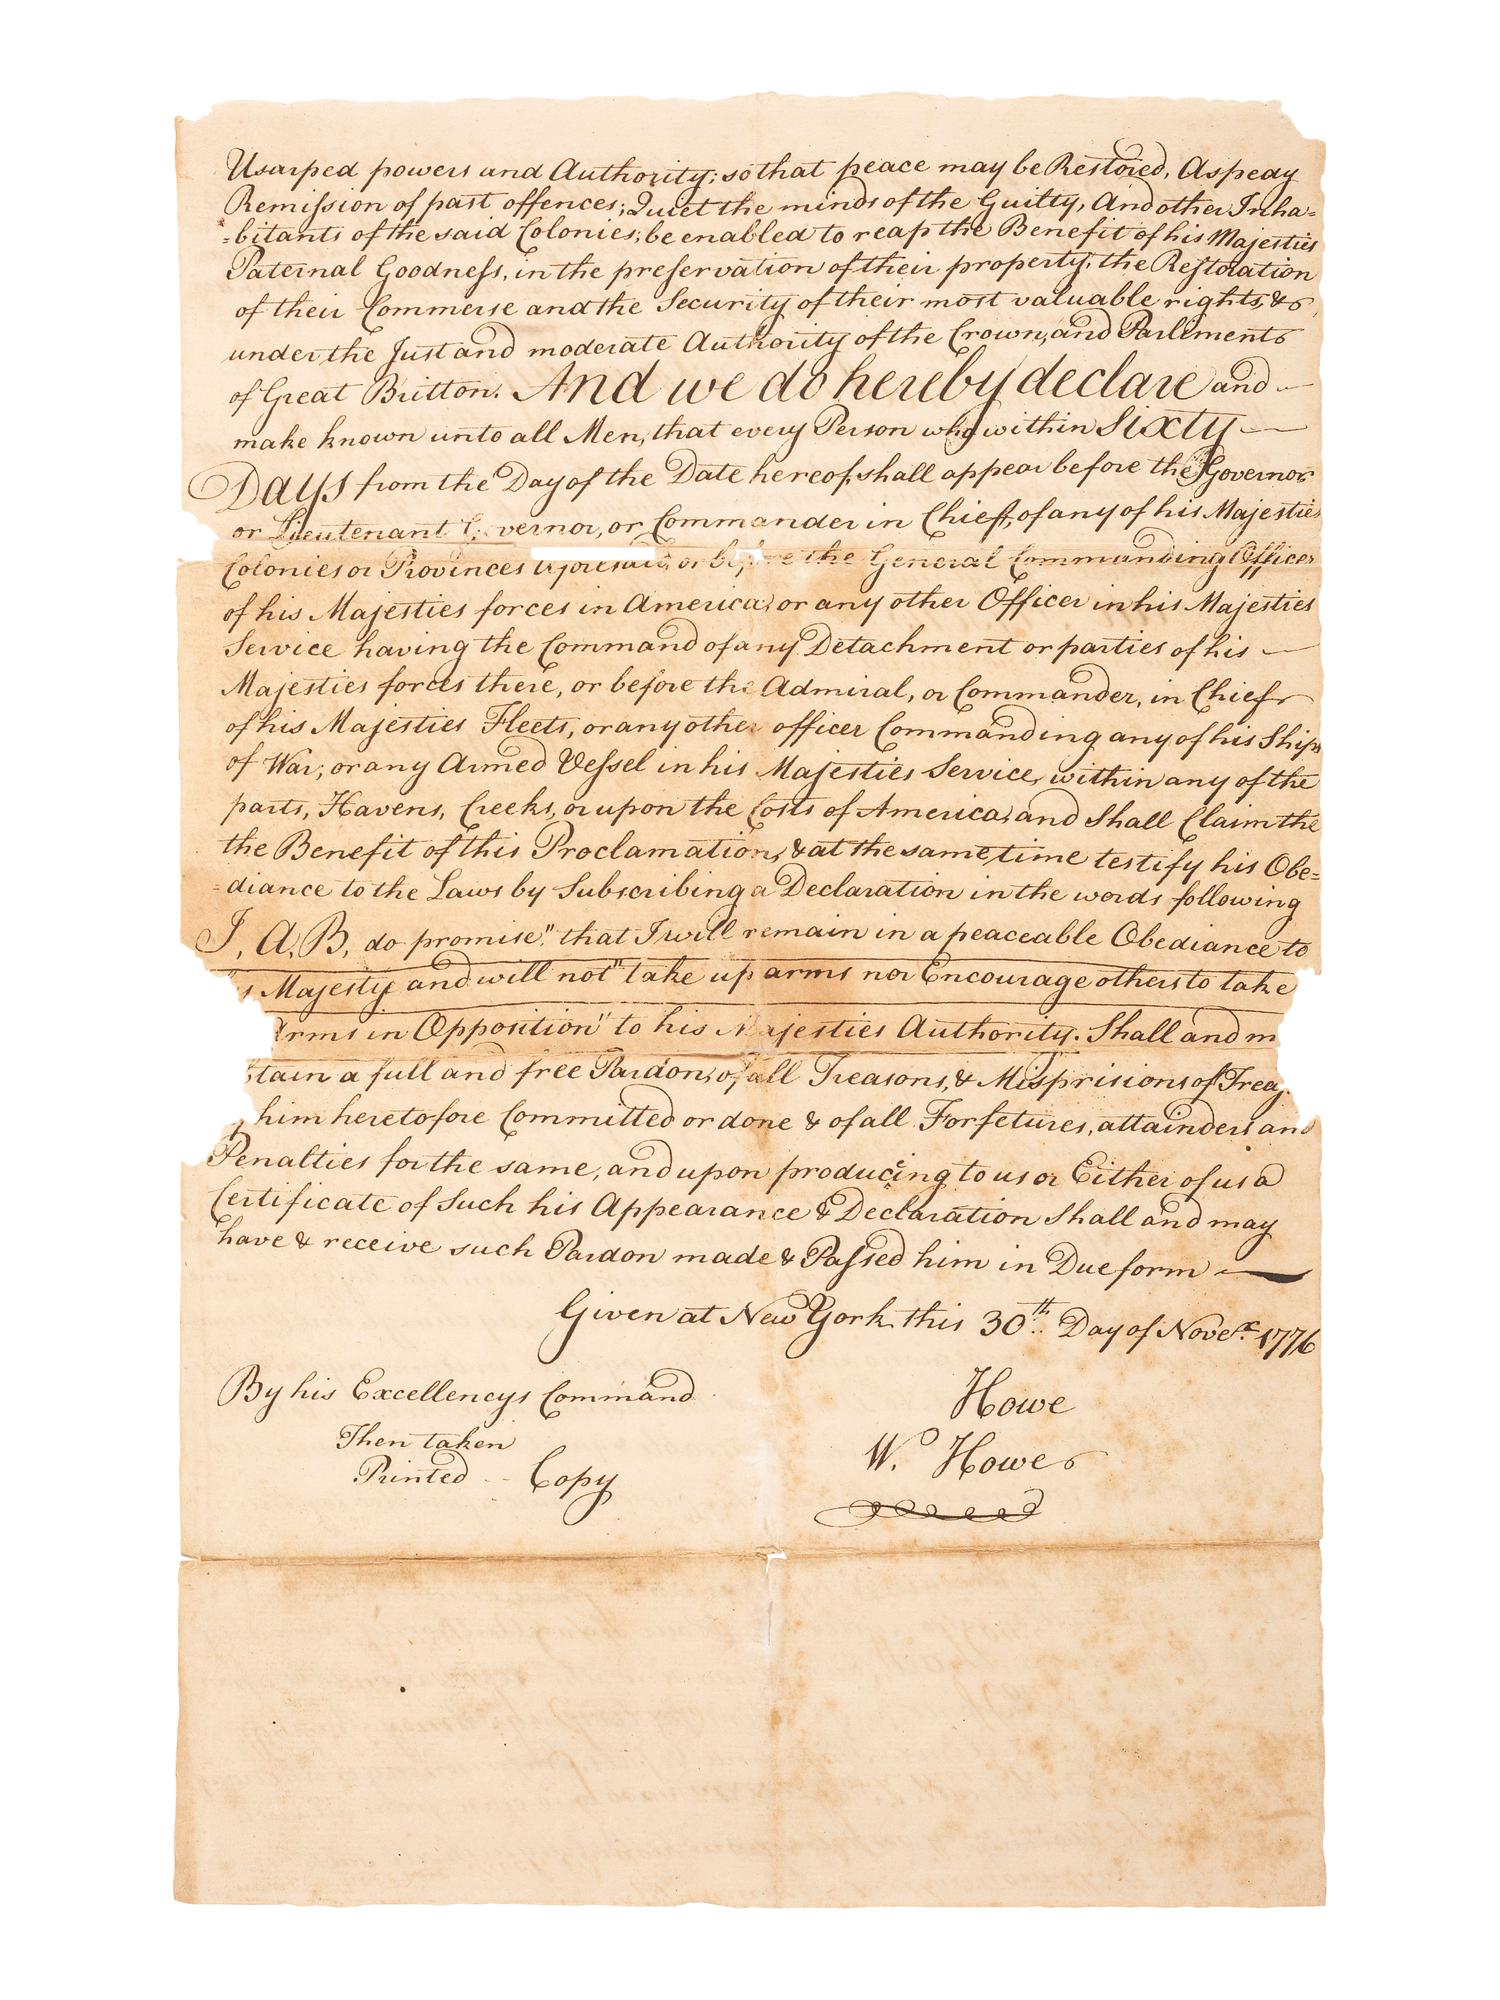 Usurped powers and Authority; so that peace may be Restored, A speay
Remission of past offences; Quiet the minds of the Guilty, And other Inha=
=bitants of the said Colonies, be enabled to reap the Benefit of his Majesties
Paternal Goodness, in the preservation of their property, the Restoration
of their Commerse and the Security of their most valuable rights, &
under the Just and moderate Authority of the Crown, and Parliments
of Great Britton. And we do hereby declare and —
make known unto all Men, that every Person who within Sixty —
Days from the Day of the Date hereof, shall appear before the Governor
or Lieutenant G vernor, or Commander in Chief, of any of his Majesties
Colonies or Provinces aforesaid, or be the General Commanding Officer
of his Majesties forces in America, or any other Officer in his Majesties
Service having the Command of any Detachment or parties of his —
Majesties forces there, or before the Admiral, or Commander, in Chief
of his Majesties Fleets, or any other officer Commanding any of his Ships
of War, or any Armed Vessel in his Majesties Service, within any of the
parts, Havens, Creeks, or upon the Costs of America, and Shall Claim the
the Benefit of this Proclamation, & at the same time testify his Obe=
=diance to the Laws by Subscribing a Declaration in the words following
I, A, B, do promise" that I will remain in a peaceable Obediance to
s Majesty and will not" take up arms nor Encourage others to take
Arms in Opposition" to his Majesties Authority. Shall and m
tain a full and free Pardon, of all Treasons, & Misprisions of Treas
him heretofore Committed or done & of all Forfetures, attainders and
Penalties for the same, and upon producing to us or Either of us a
Certificate of Such his Appearance & Declaration Shall and may
have & receive such Pardon made & Passed him in Due form —
Given at New York this 30th Day of Nover 1776
By his Excellencys Command
Howe
Then taken
W. Howe
Printed - Copy